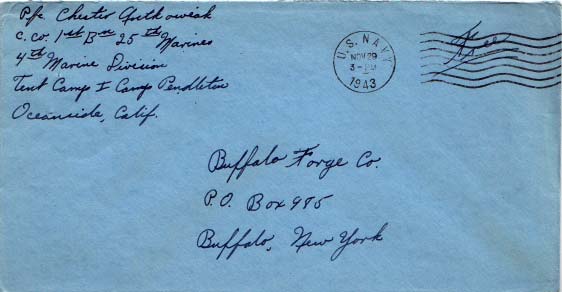 Pfc. Chester
C. Co. 1st Bn 25th Marines
4th Marine Division
Tent Camp I Camp Pendleton
Oceanside, Calif.
U.S. NAVY
NOV 29
3-PM
1943
Free
Buffalo Forge Co.
P.O. Box 985
Buffalo, New York